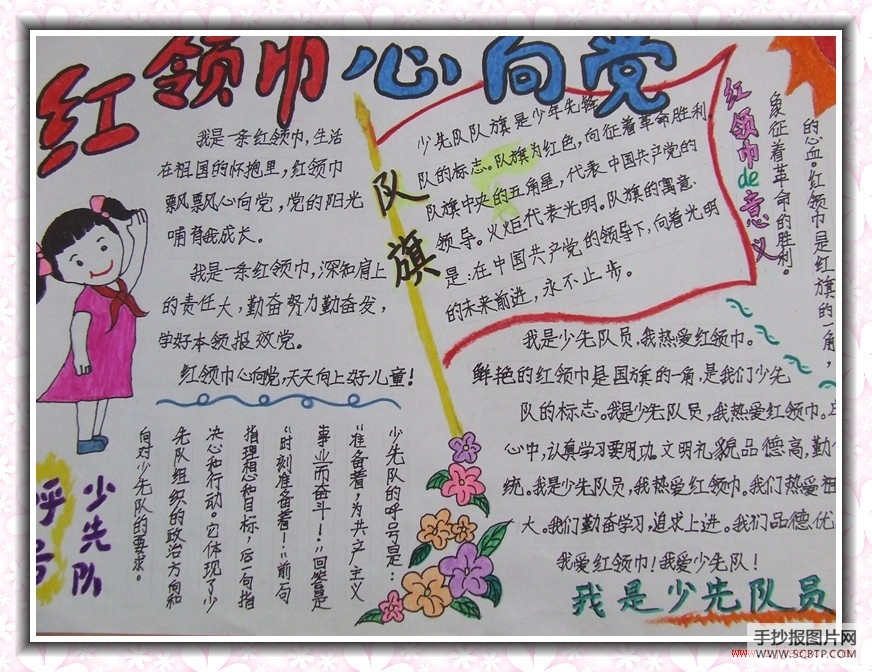 红领巾心向党
我是一条红领巾,生活
在祖国的怀抱里,红领巾
飘飘心向党,党的阳光
哺育我成长。
我是一条红领巾,深知肩上
的责任大,勤奋努力勤奋发,
学好本领报效党。
红领巾心向党,天天向上好儿童!
队旗
少先队队旗是少年先锋
队的标志。队旗为红色,向征着革命胜利.
队旗中央的五角星,代表中国共产党的
领导。火炬代表光明。队旗的寓意
是:在中国共产党的领导下,向着光明
的未来前进,永不止步。
红领巾de意义
象征着革命的胜利。
的心血。红领巾是红旗的一角,
我是少先队员,我热爱红领巾。
鲜艳的红领巾是国旗的一角,是我们少先
队的标志。我是少先队员,我热爱红领巾。
心中,认真学习要用功。文明礼貌品德高,勤
统。我是少先队员,我热爱红领巾。我们热爱祖
大。我们勤奋学习,追求上进。我们品德优
我爱红领巾!我爱少先队!
我是少先队员
少先队
呼号
少先队的呼号是:
“准备着,为共产主义
事业而奋斗!”回答是
“时刻准备着!”前句
指理想和目标,后一句指
决心和行动。它体现了少
先队组织的政治方向和
向对少先队的要求。
手抄报图片网
WWW.SCBTP.COM